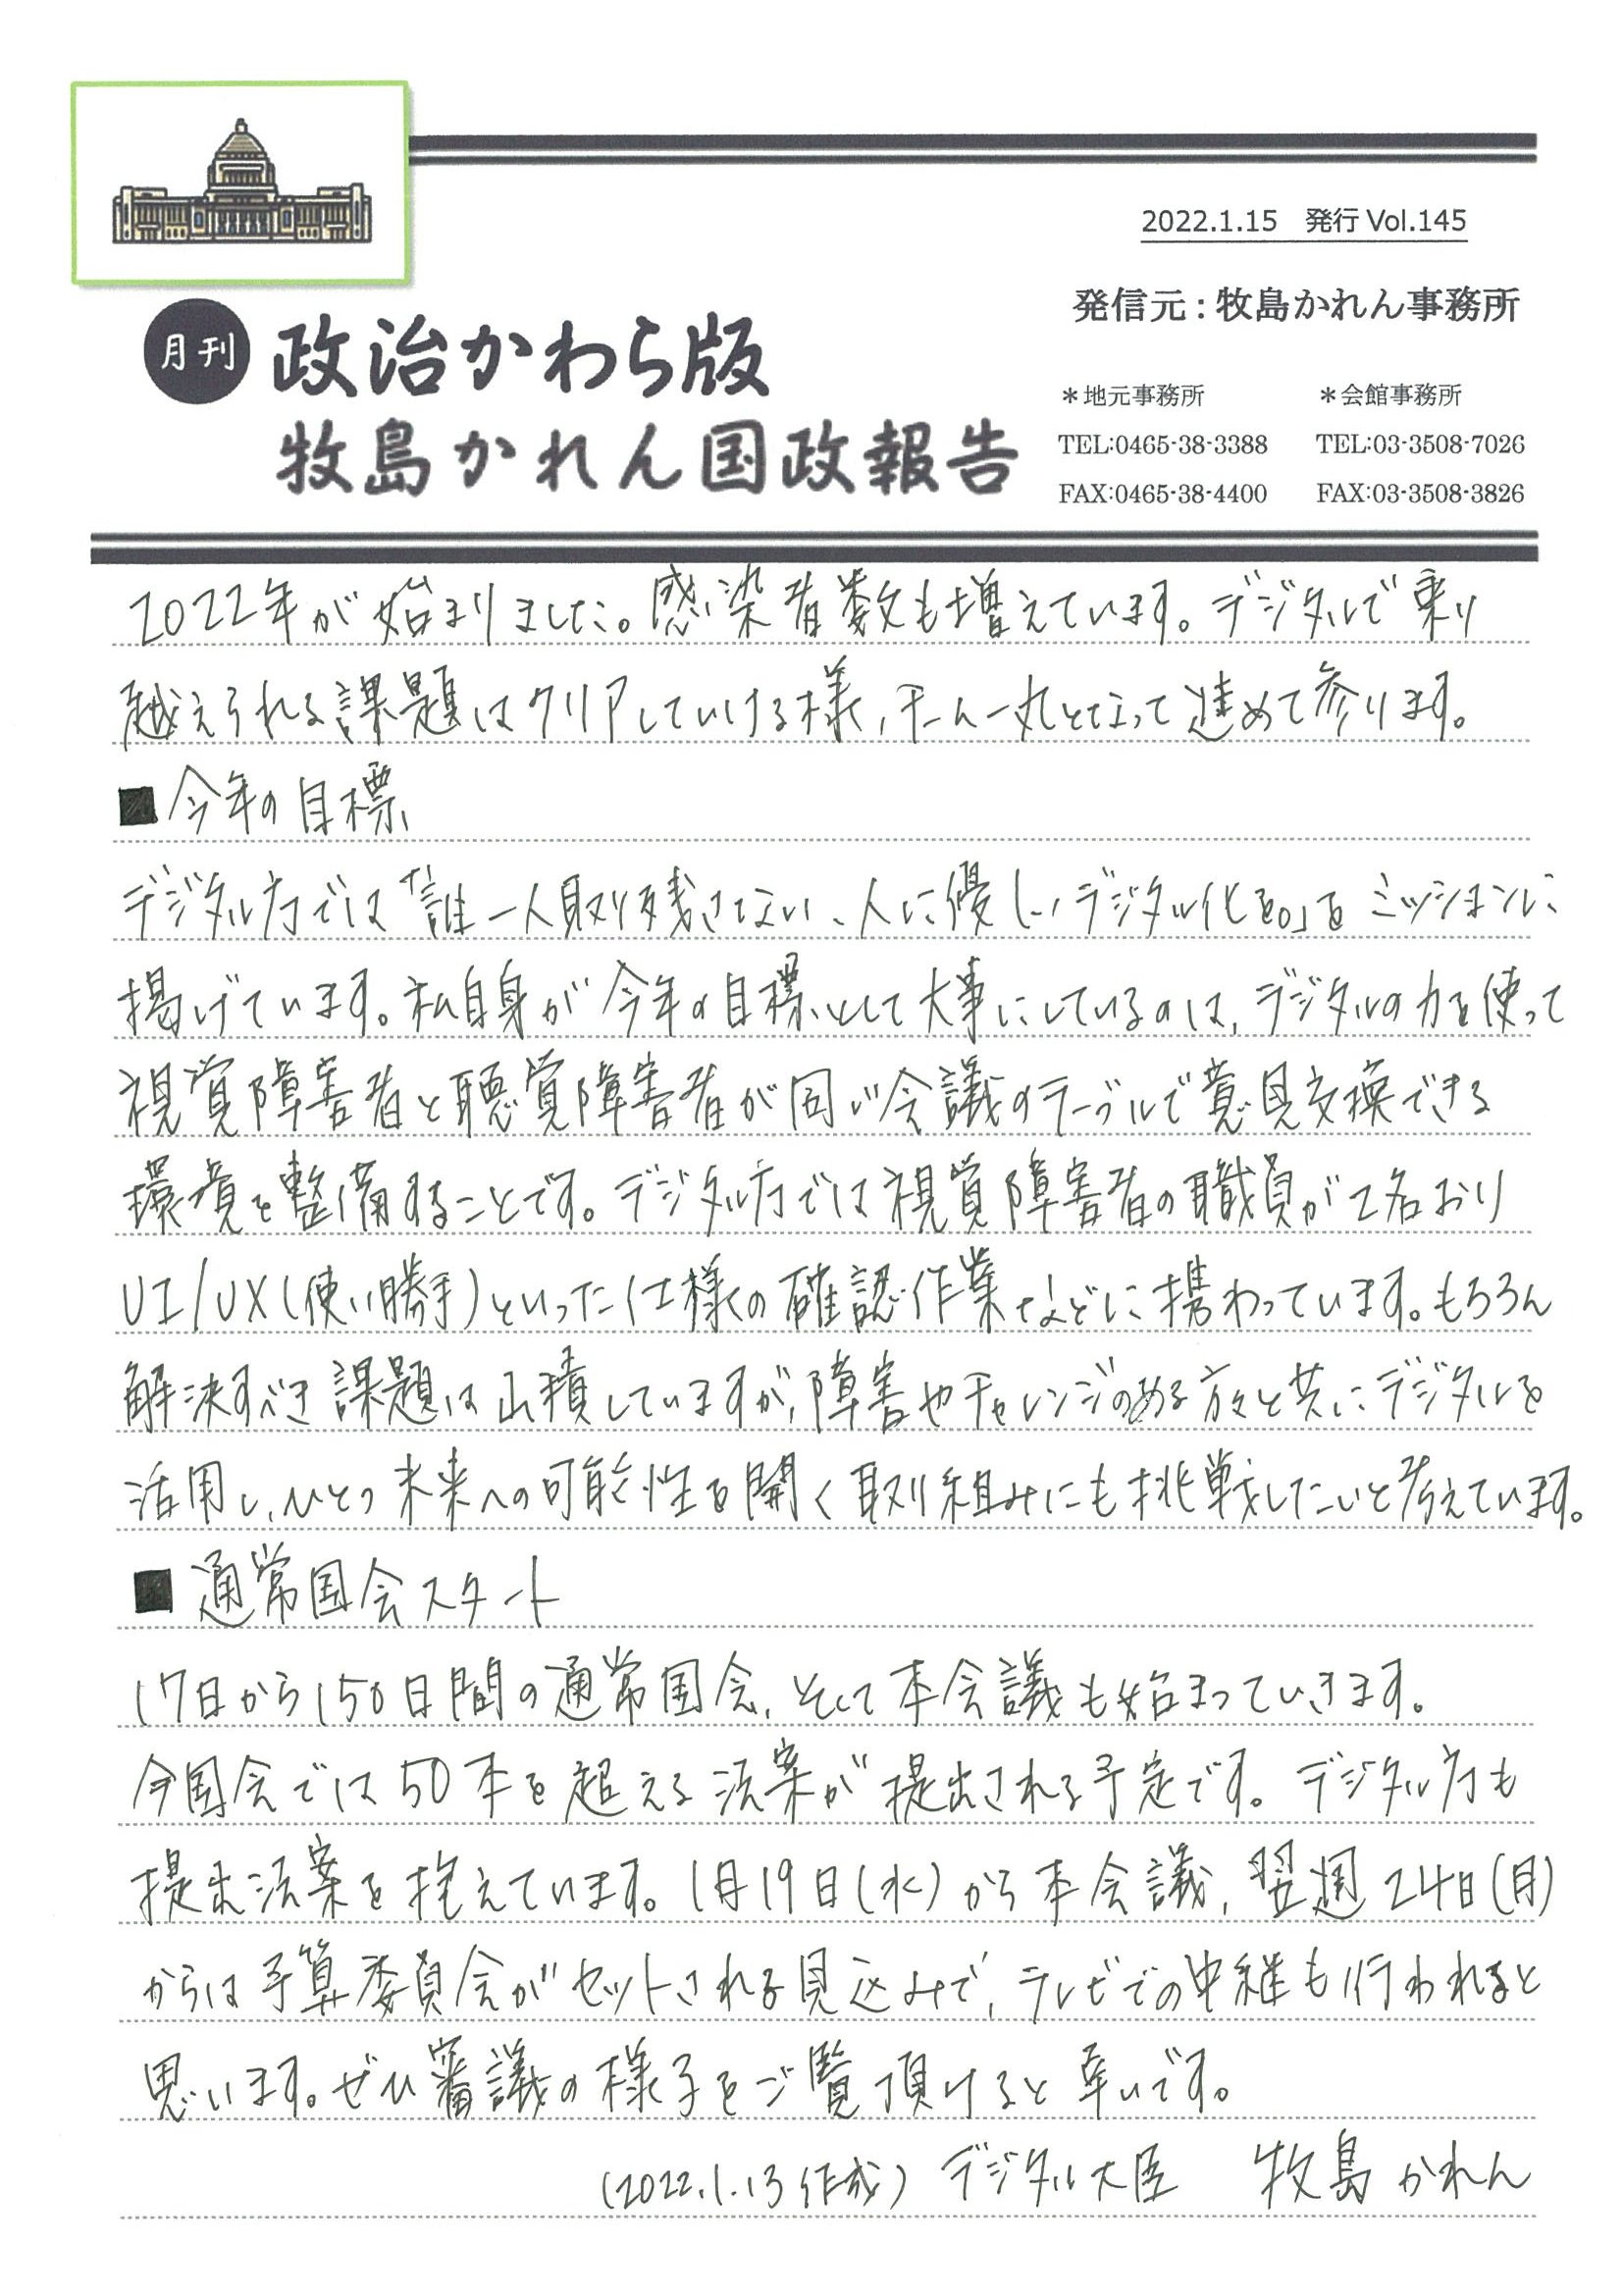 2022.1.15 発行 Vol.145
発信元:牧島かれん事務所
月刊 政治かわら版
牧島かれん国政報告
＊地元事務所 ＊会館事務所
TEL:0465-38-3388 TEL:03-3508-7026
FAX:0465-38-4400 FAX:03-3508-3826
2022年が始まりました。感染者数も増えています。デジタルで乗り
越えられる課題はクリアしていける様、チーム一丸となって進めて参ります。
■今年の目標
デジタル庁では「誰一人取り残さない、人に優しいデジタル化を。」をミッションに
掲げています。私自身が今年の目標として大事にしているのは、デジタルの力を使って
視覚障害者と聴覚障害者が同じ会議のテーブルで意見交換できる
環境を整備することです。デジタル庁では視覚障害者の職員が2名おり
UI/UX(使い勝手)といった仕様の確認作業などに携わっています。もちろん
解決すべき課題は山積していますが、障害やチャレンジのある方々と共にデジタルを
活用し、ひとつ未来への可能性を開く取り組みにも挑戦したいと考えています。
■通常国会スタート
17日から150日間の通常国会、そして本会議も始まっていきます。
今国会では50本を超える法案が提出される予定です。デジタル庁も
提出法案を抱えています。1月19日(水)から本会議、翌週24日(月)
からは予算委員会がセットされる見込みで、テレビでの中継も行われると
思います。ぜひ審議の様子をご覧頂けると幸いです。
(2022.1.13作成) デジタル大臣 牧島かれん